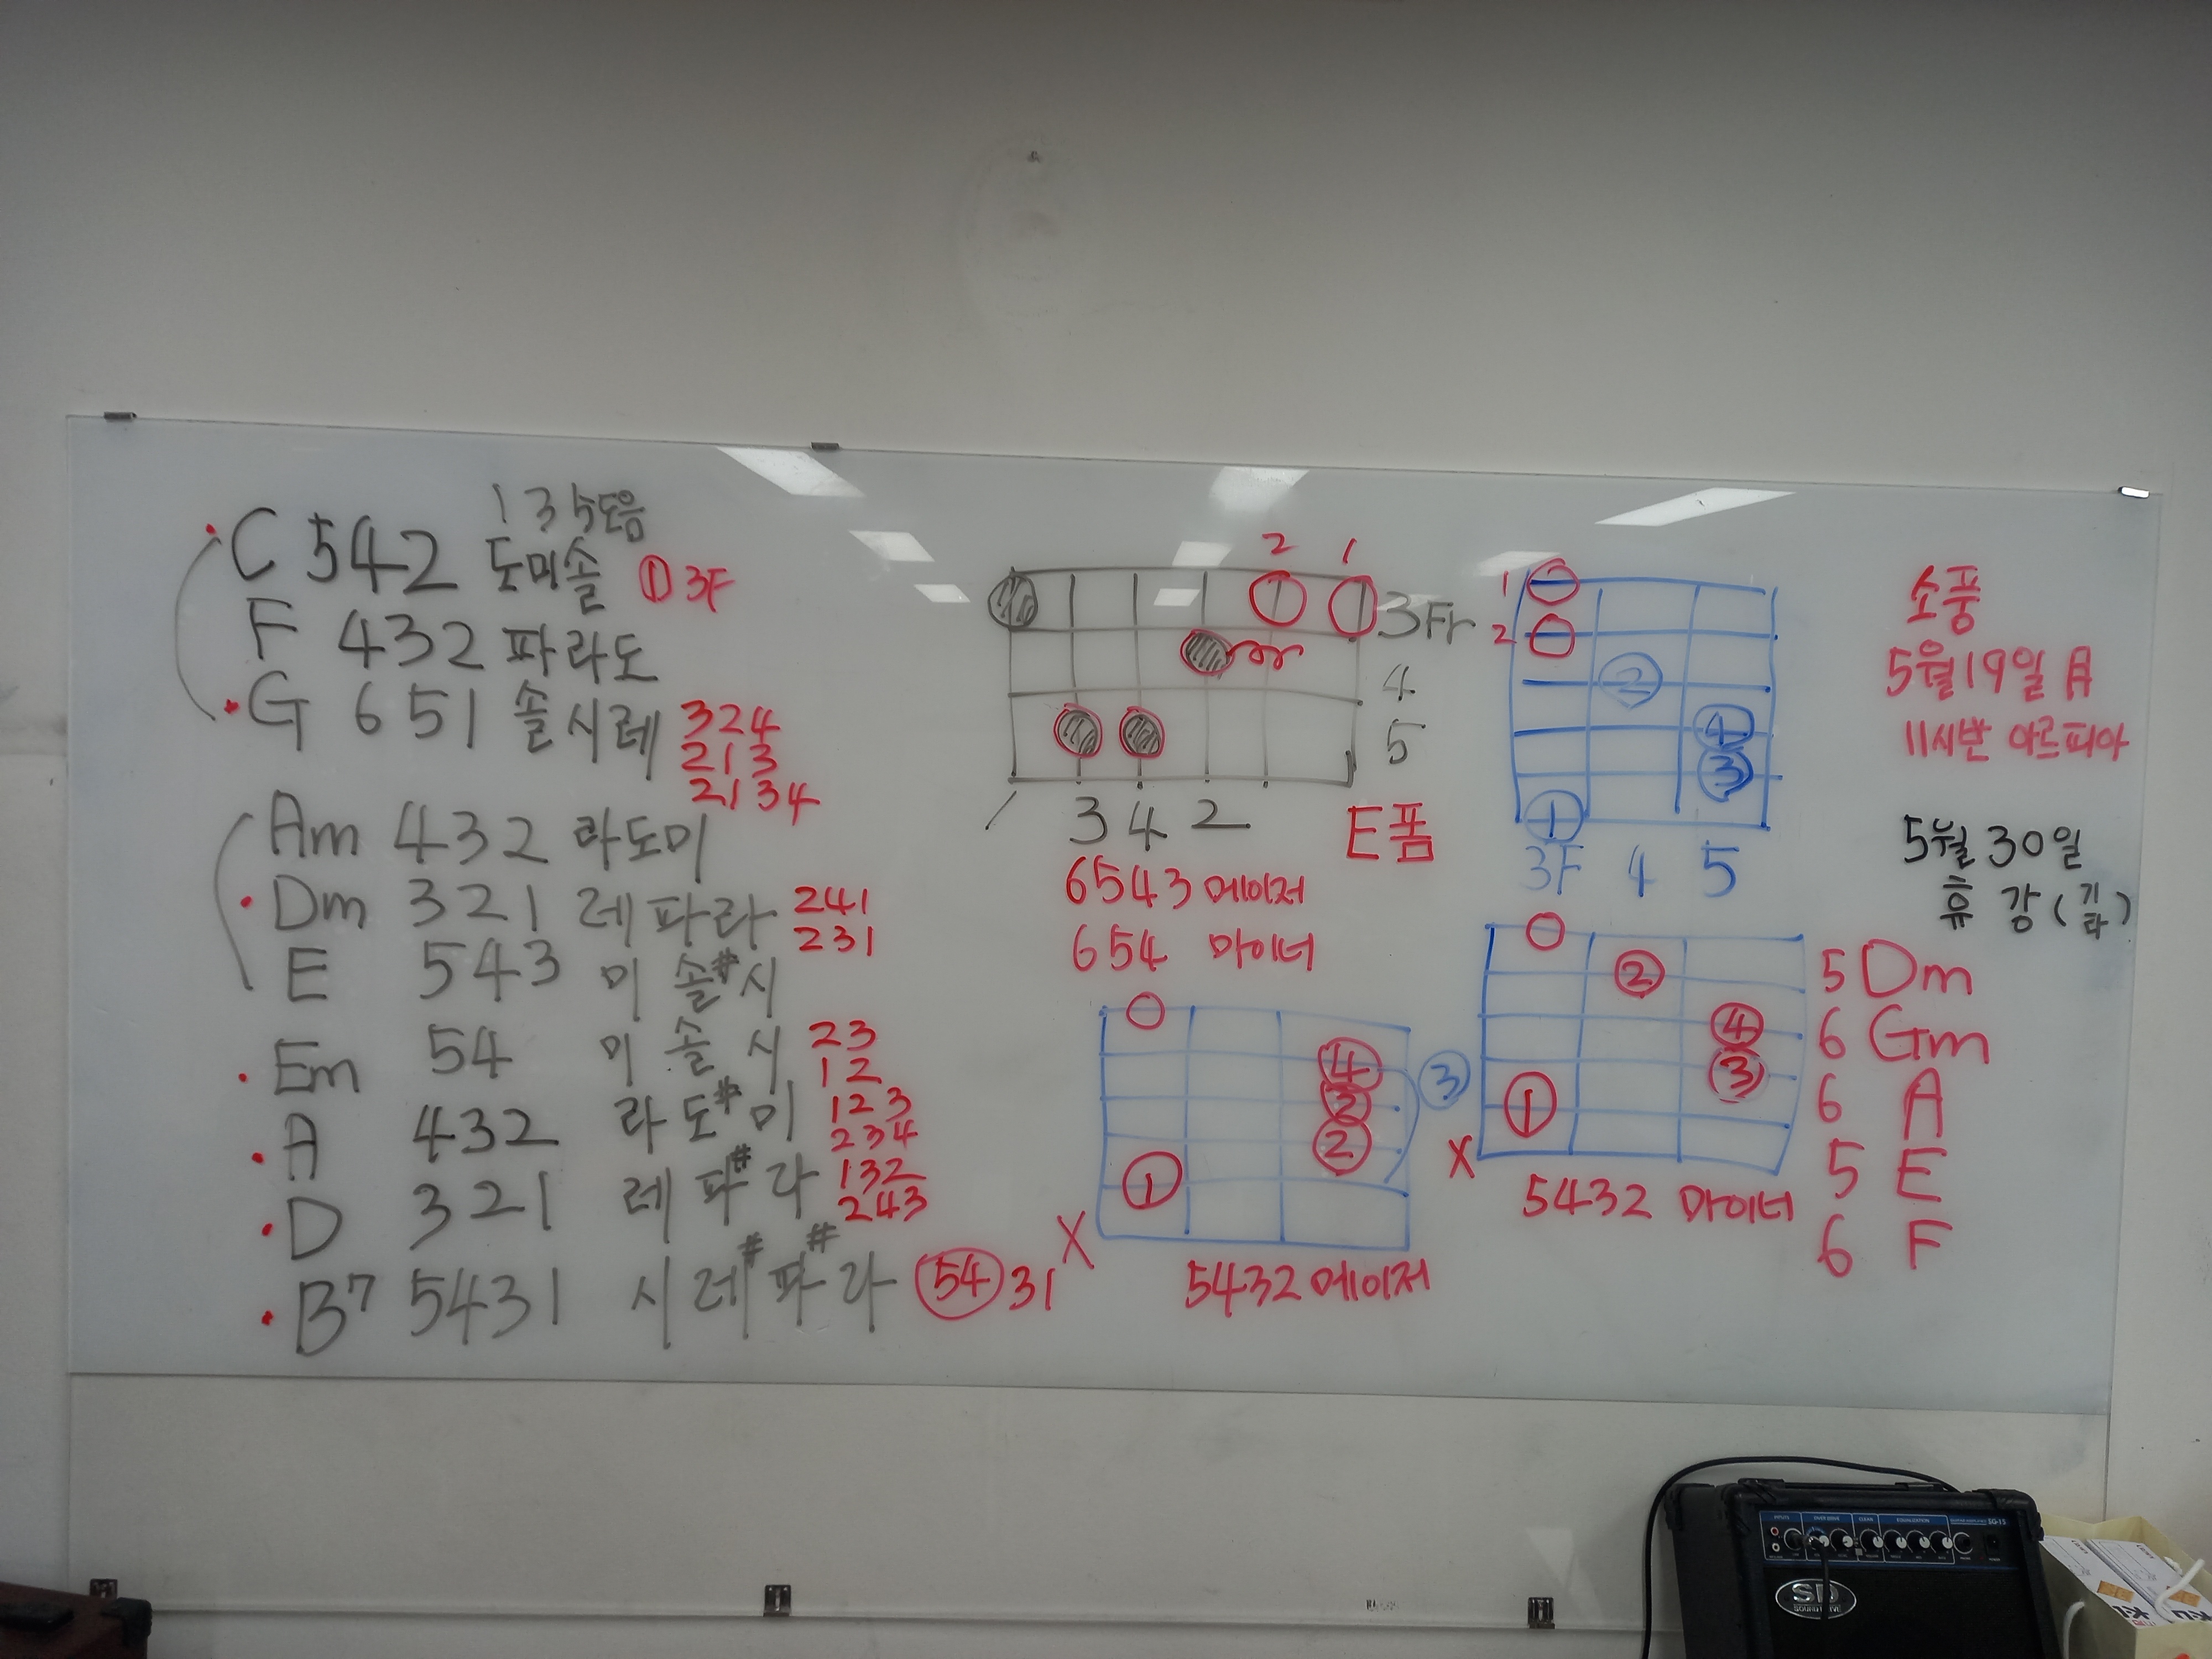 1 3 5도음
C 542 도미솔 ① 3F
F 432 파라도
G 651 솔시레 324
213
2134
Am 432 라도미
Dm 321 레파라 241
231
E 543 미 솔# 시
Em 54 미 솔 시 23
12
A 432 라 도# 미 123
234
D 321 레 파# 라 132
243
B7 5431 시 레# 파# 라 (54)31
2 1
3Fr
4
5
1 3 4 2
E폼
6543 메이저
654 마이너
1
2
②
④
③
①
3F 4 5
④
③
②
①
③
X
5432 메이저
②
④
③
①
X
5432 마이너
5 Dm
6 Gm
6 A
5 E
6 F
소풍
5월19일 月
11시반 아르피아
5월30일
휴 강 (기타)
INPUTS OVER DRIVE CLEAN EQUALIZATION SG-15
SD